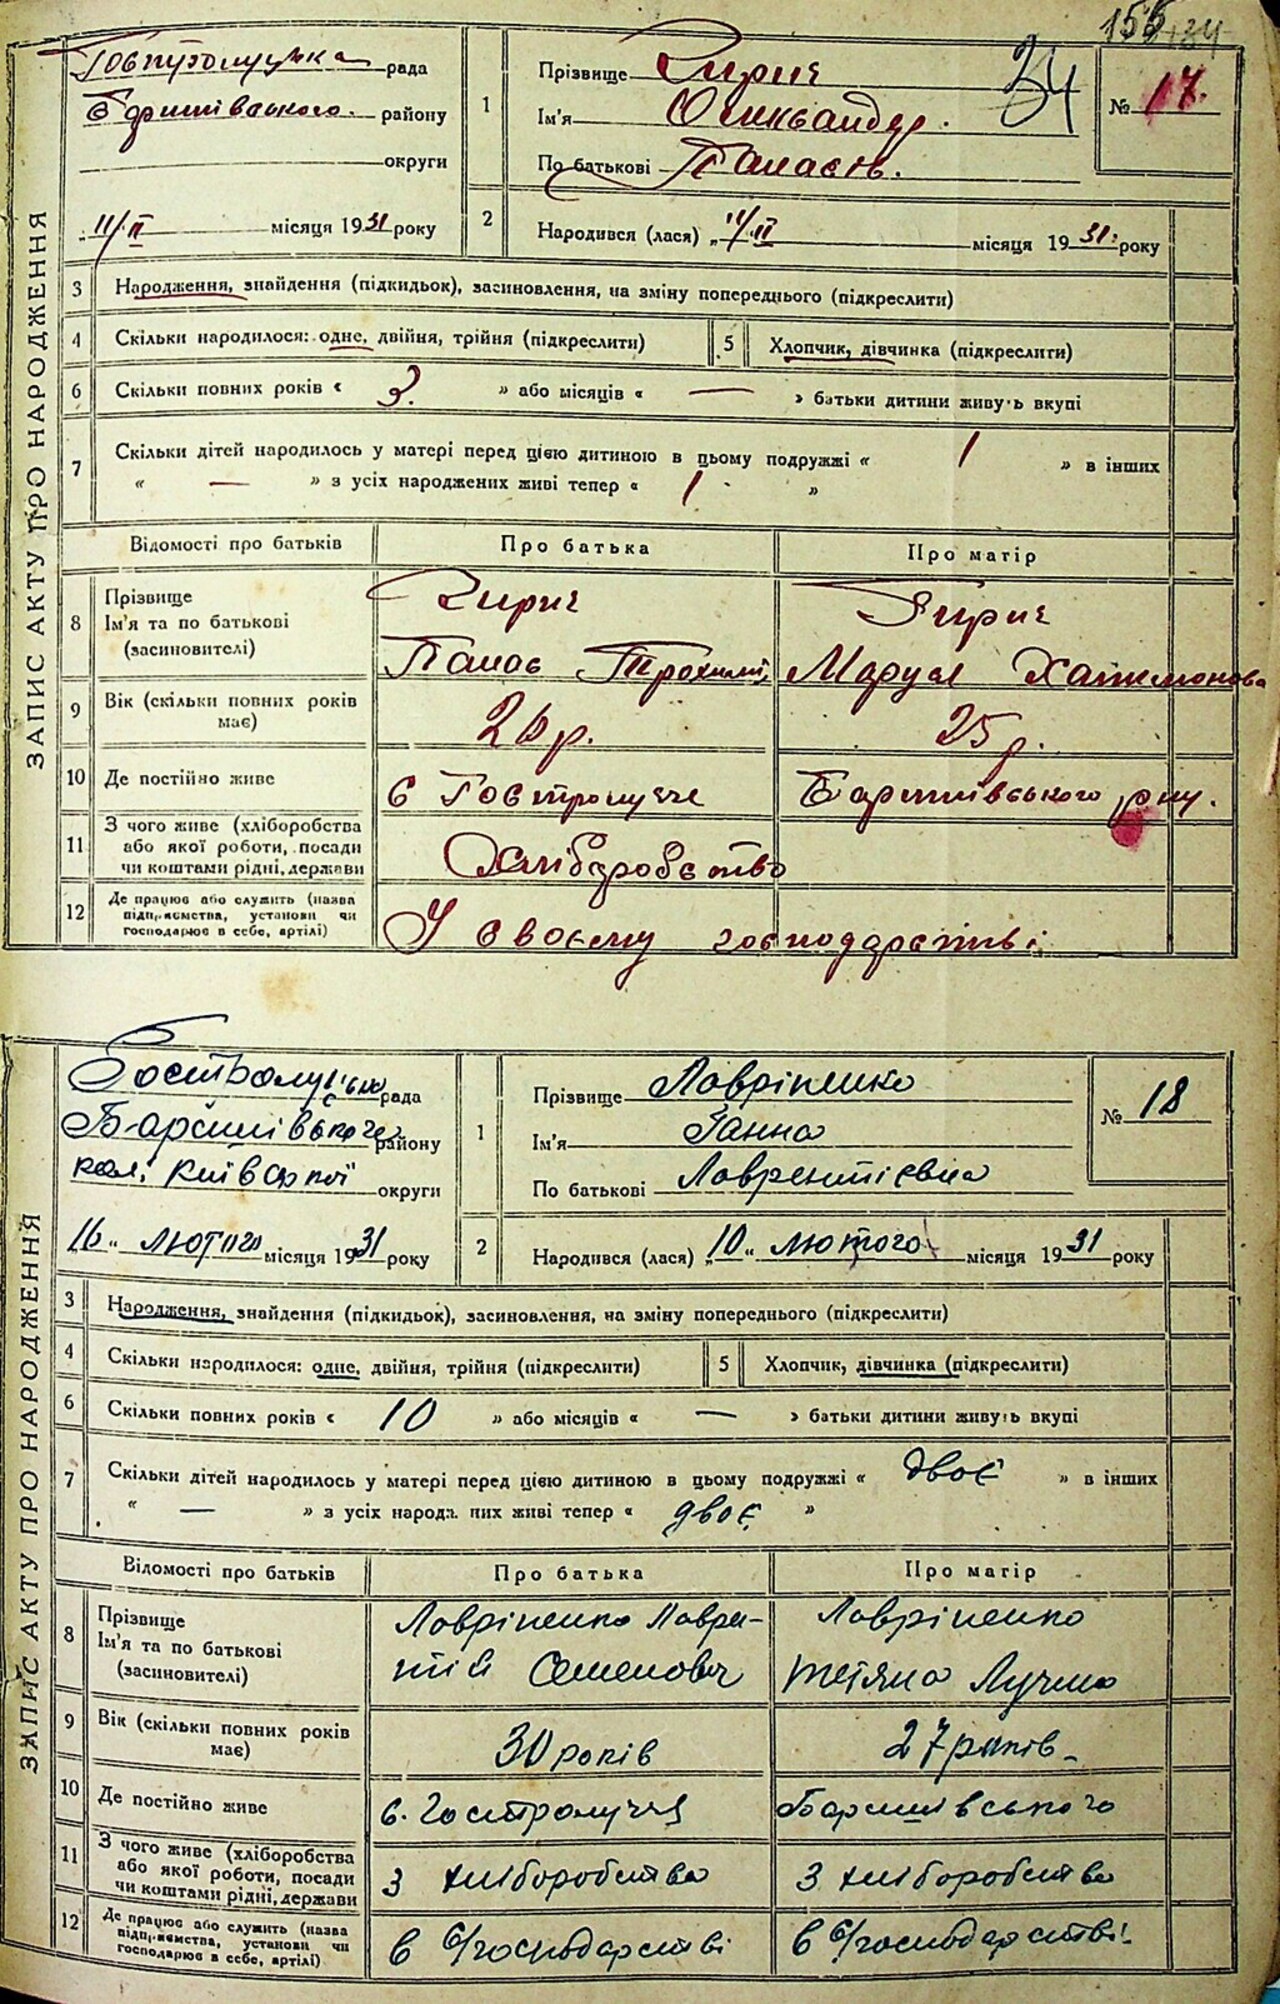 155
34
Гостролуцька рада
Баришівського району
округи
34
1
Прізвище Кирич
Ім'я Олександер.
По батькові Панасів.
№ 17.
„11/II місяця 1931 року
2
Народився (лася) „11/II місяця 1931 року
ЗАПИС АКТУ ПРО НАРОДЖЕННЯ
3 Народження, знайдення (підкидьок), засиновлення, на зміну попереднього (підкреслити)
4 Скільки народилося: одне, двійня, трійня (підкреслити) 5 Хлопчик, дівчинка (підкреслити)
6 Скільки повних років « 3. » або місяців « — » батьки дитини живуть вкупі
7 Скільки дітей народилось у матері перед цією дитиною в цьому подружжі « 1 » в інших
« — » з усіх народжених живі тепер « 1 »
Відомості про батьків Про батька Про матір
8 Прізвище
Ім'я та по батькові
(засиновителі)
Кирич Кирич
Панас Маруся
9 Вік (скільки повних років має) 26 р. 25 р.
10 Де постійно живе с Гостролуччє Баришівського р-ну.
11 З чого живе (хліборобства
або якої роботи, посади
чи коштами рідні, держави
Хліборобство
12 Де працює або служить (назва
підприємства, установи чи
господарює в себе, артілі)
У своєму господарстві
Гостролуцька рада
Баришівського району
кол. Київської округи
1
Прізвище Лавріненко
Ім'я Ганна
По батькові Лаврентієвна
№ 18
16 „ лютого місяця 1931 року
2
Народився (лася) „10„ лютого місяця 1931 року
ЗАПИС АКТУ ПРО НАРОДЖЕННЯ
3 Народження, знайдення (підкидьок), засиновлення, на зміну попереднього (підкреслити)
4 Скільки народилося: одне, двійня, трійня (підкреслити) 5 Хлопчик, дівчинка (підкреслити)
6 Скільки повних років « 10 » або місяців « — » батьки дитини живуть вкупі
7 Скільки дітей народилось у матері перед цією дитиною в цьому подружжі « двоє » в інших
« — » з усіх народжених живі тепер « двоє »
Відомості про батьків Про батька Про матір
8 Прізвище
Ім'я та по батькові
(засиновителі)
Лавріненко Лаврен- Лавріненко
тій Семенович Тетяна
9 Вік (скільки повних років має) 30 років 27 років
10 Де постійно живе с. Гостролуччя Баришівського
11 З чого живе (хліборобства
або якої роботи, посади
чи коштами рідні, держави
З хліборобства З хліборобства
12 Де працює або служить (назва
підприємства, установи чи
господарює в себе, артілі)
в с/господарстві в с/господарстві